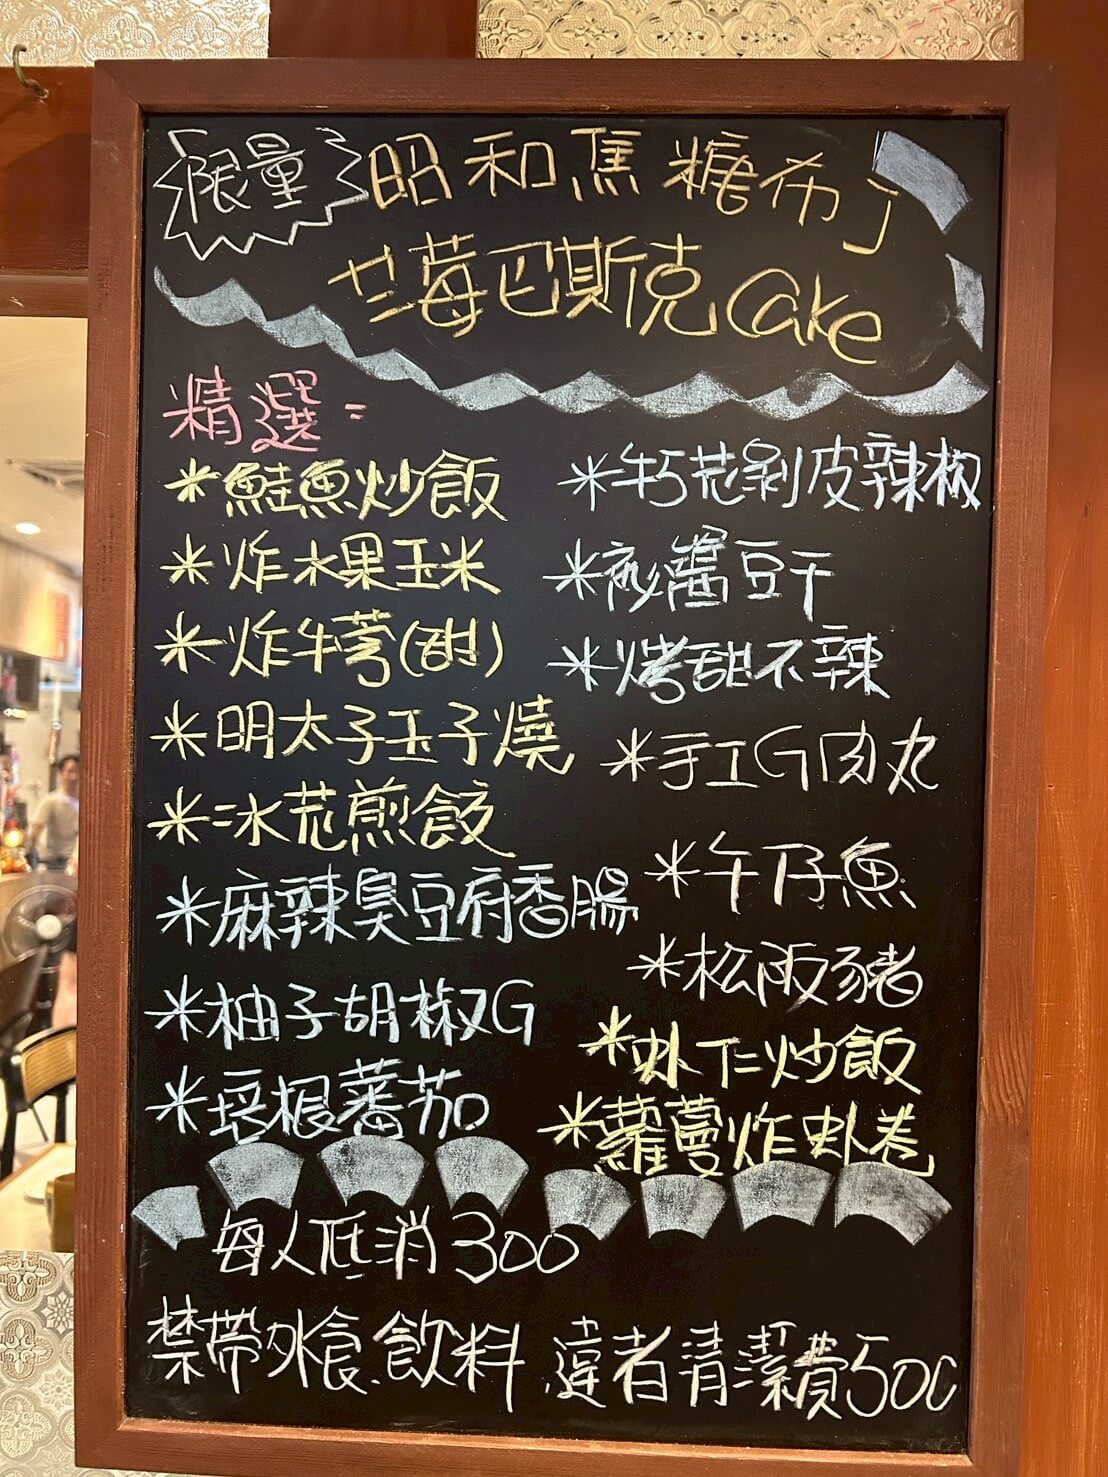 限量 昭和焦糖布丁
艹莓巴斯克Cake
精選=
*鮭魚炒飯
*炸水果玉米
*炸牛蒡(甜)
*明太子玉子燒
*冰花煎餃
*麻辣臭豆腐香腸
*柚子胡椒G
*培根蕃茄
*朽花剝皮辣椒
*祕醬豆干
*烤甜不辣
*手工G肉丸
*午仔魚
*松阪豬
*虾仁炒飯
*蘿蔓炸虾卷
每人低消300
禁帶外食.飲料,違者清潔費500